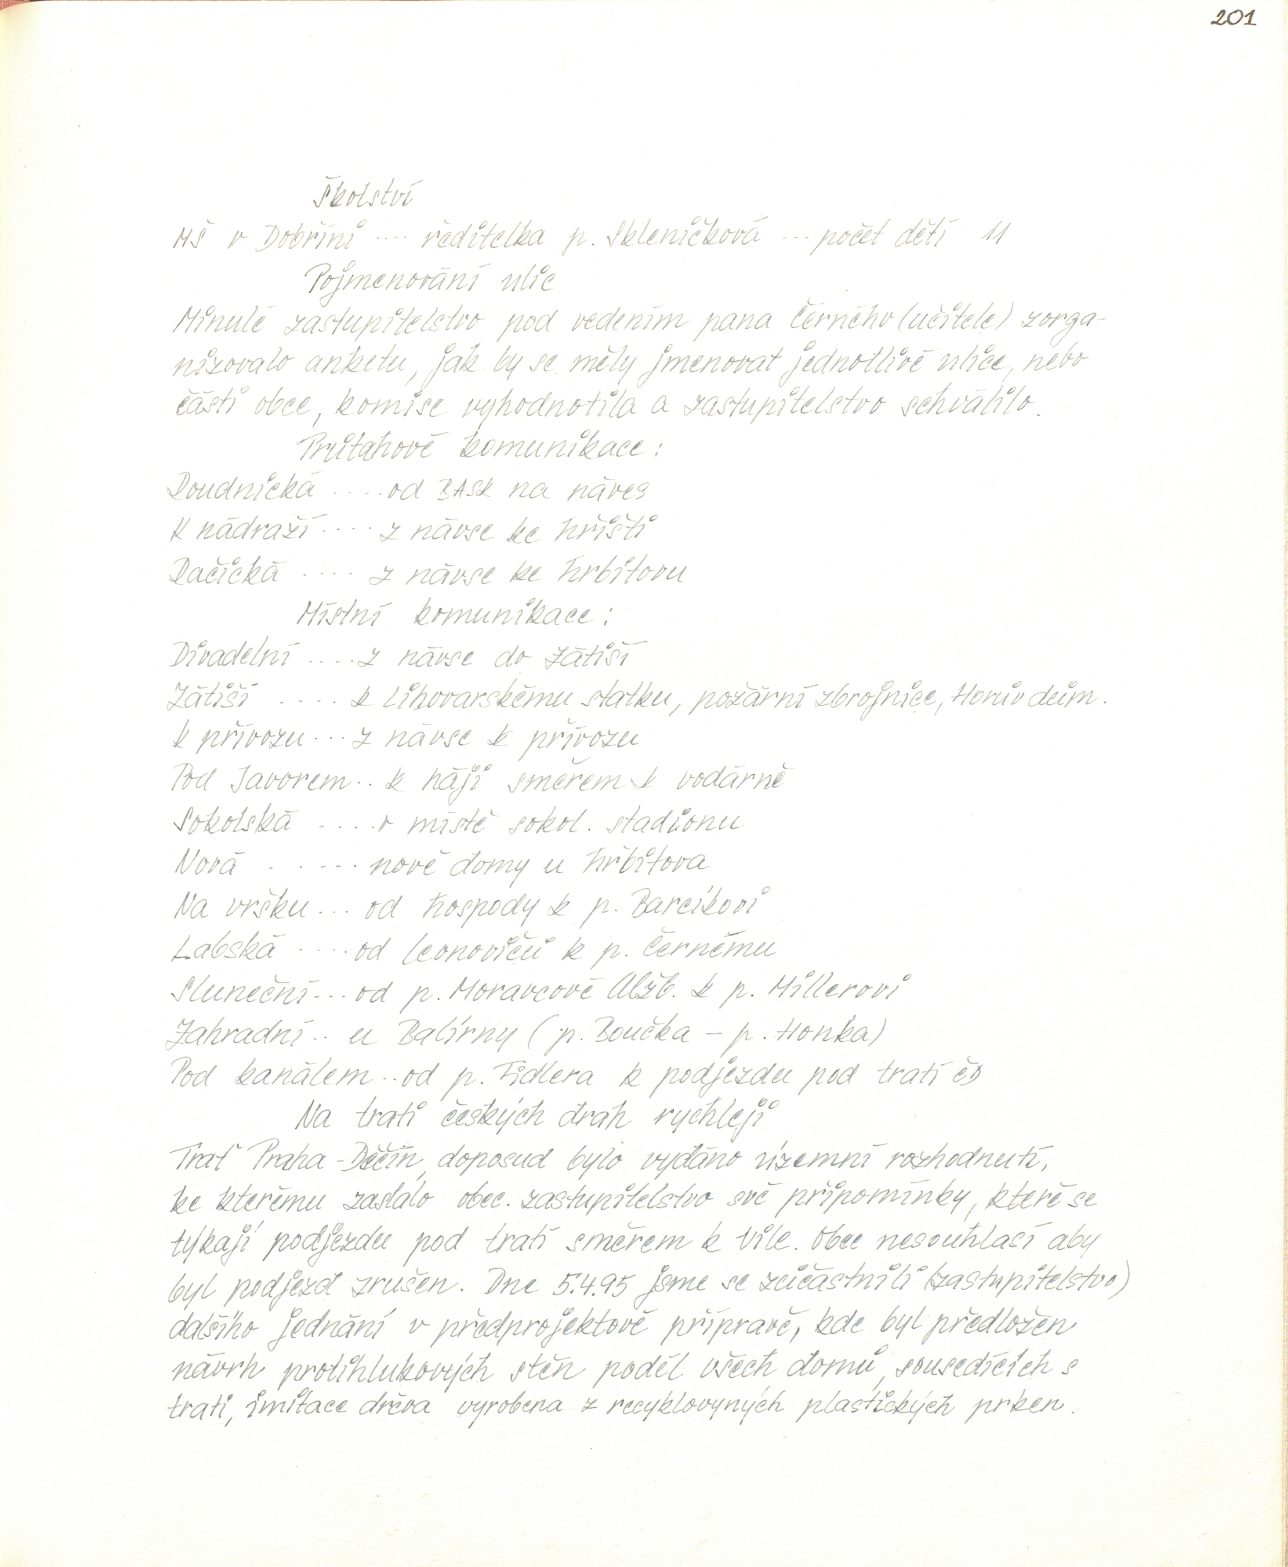 201
Školství
MŠ v Dobříni .... ředitelka p. Skleničková ... počet dětí 11
Pojmenování ulic
Minulé zastupitelstvo pod vedením pana Černého (učitele) zorga-
nizovalo anketu, jak by se měly jmenovat jednotlivé ulice, nebo
části obce, komise vyhodnotila a zastupitelstvo schválilo.
Průtahové komunikace:
Roudnická .... od BASK na náves
K nádraží .... z návse ke hřišti
Račická .... z návse ke hřbitovu
Místní komunikace:
Divadelní .... z návse do Zátiší
Zátiší .... k Lihovarskému statku, požární zbrojnice, Honův dům.
K přívozu ... z návse k přívozu
Pod Javorem .. k háji směrem k vodárně
Sokolská .... v místě sokol. stadionu
Nová ..... nové domy u hřbitova
Na vršku ... od hospody k p. Barcikovi
Labská .... od Leonovičů k p. Černému
Sluneční ... od p. Moravcové Alžb. k p. Millerovi
Zahradní .. u Balírny (p. Boučka - p. Honka)
Pod kanálem .. od p. Fidlera k podjezdu pod tratí ČD
Na trati českých drah rychleji
Trať Praha - Děčín, doposud bylo vydáno územní rozhodnutí,
ke kterému zaslalo obec. zastupitelstvo své připomínky, které se
týkají podjezdu pod tratí směrem k Vile. Obec nesouhlasí aby
byl podjezd zrušen. Dne 5.4.95 jsme se zúčastnili (zastupitelstvo)
dalšího jednání v předprojektové přípravě, kde byl předložen
návrh protihlukových stěn podél všech domů, sousedících s
tratí, imitace dřeva vyrobena z recyklovyných plastických prken.